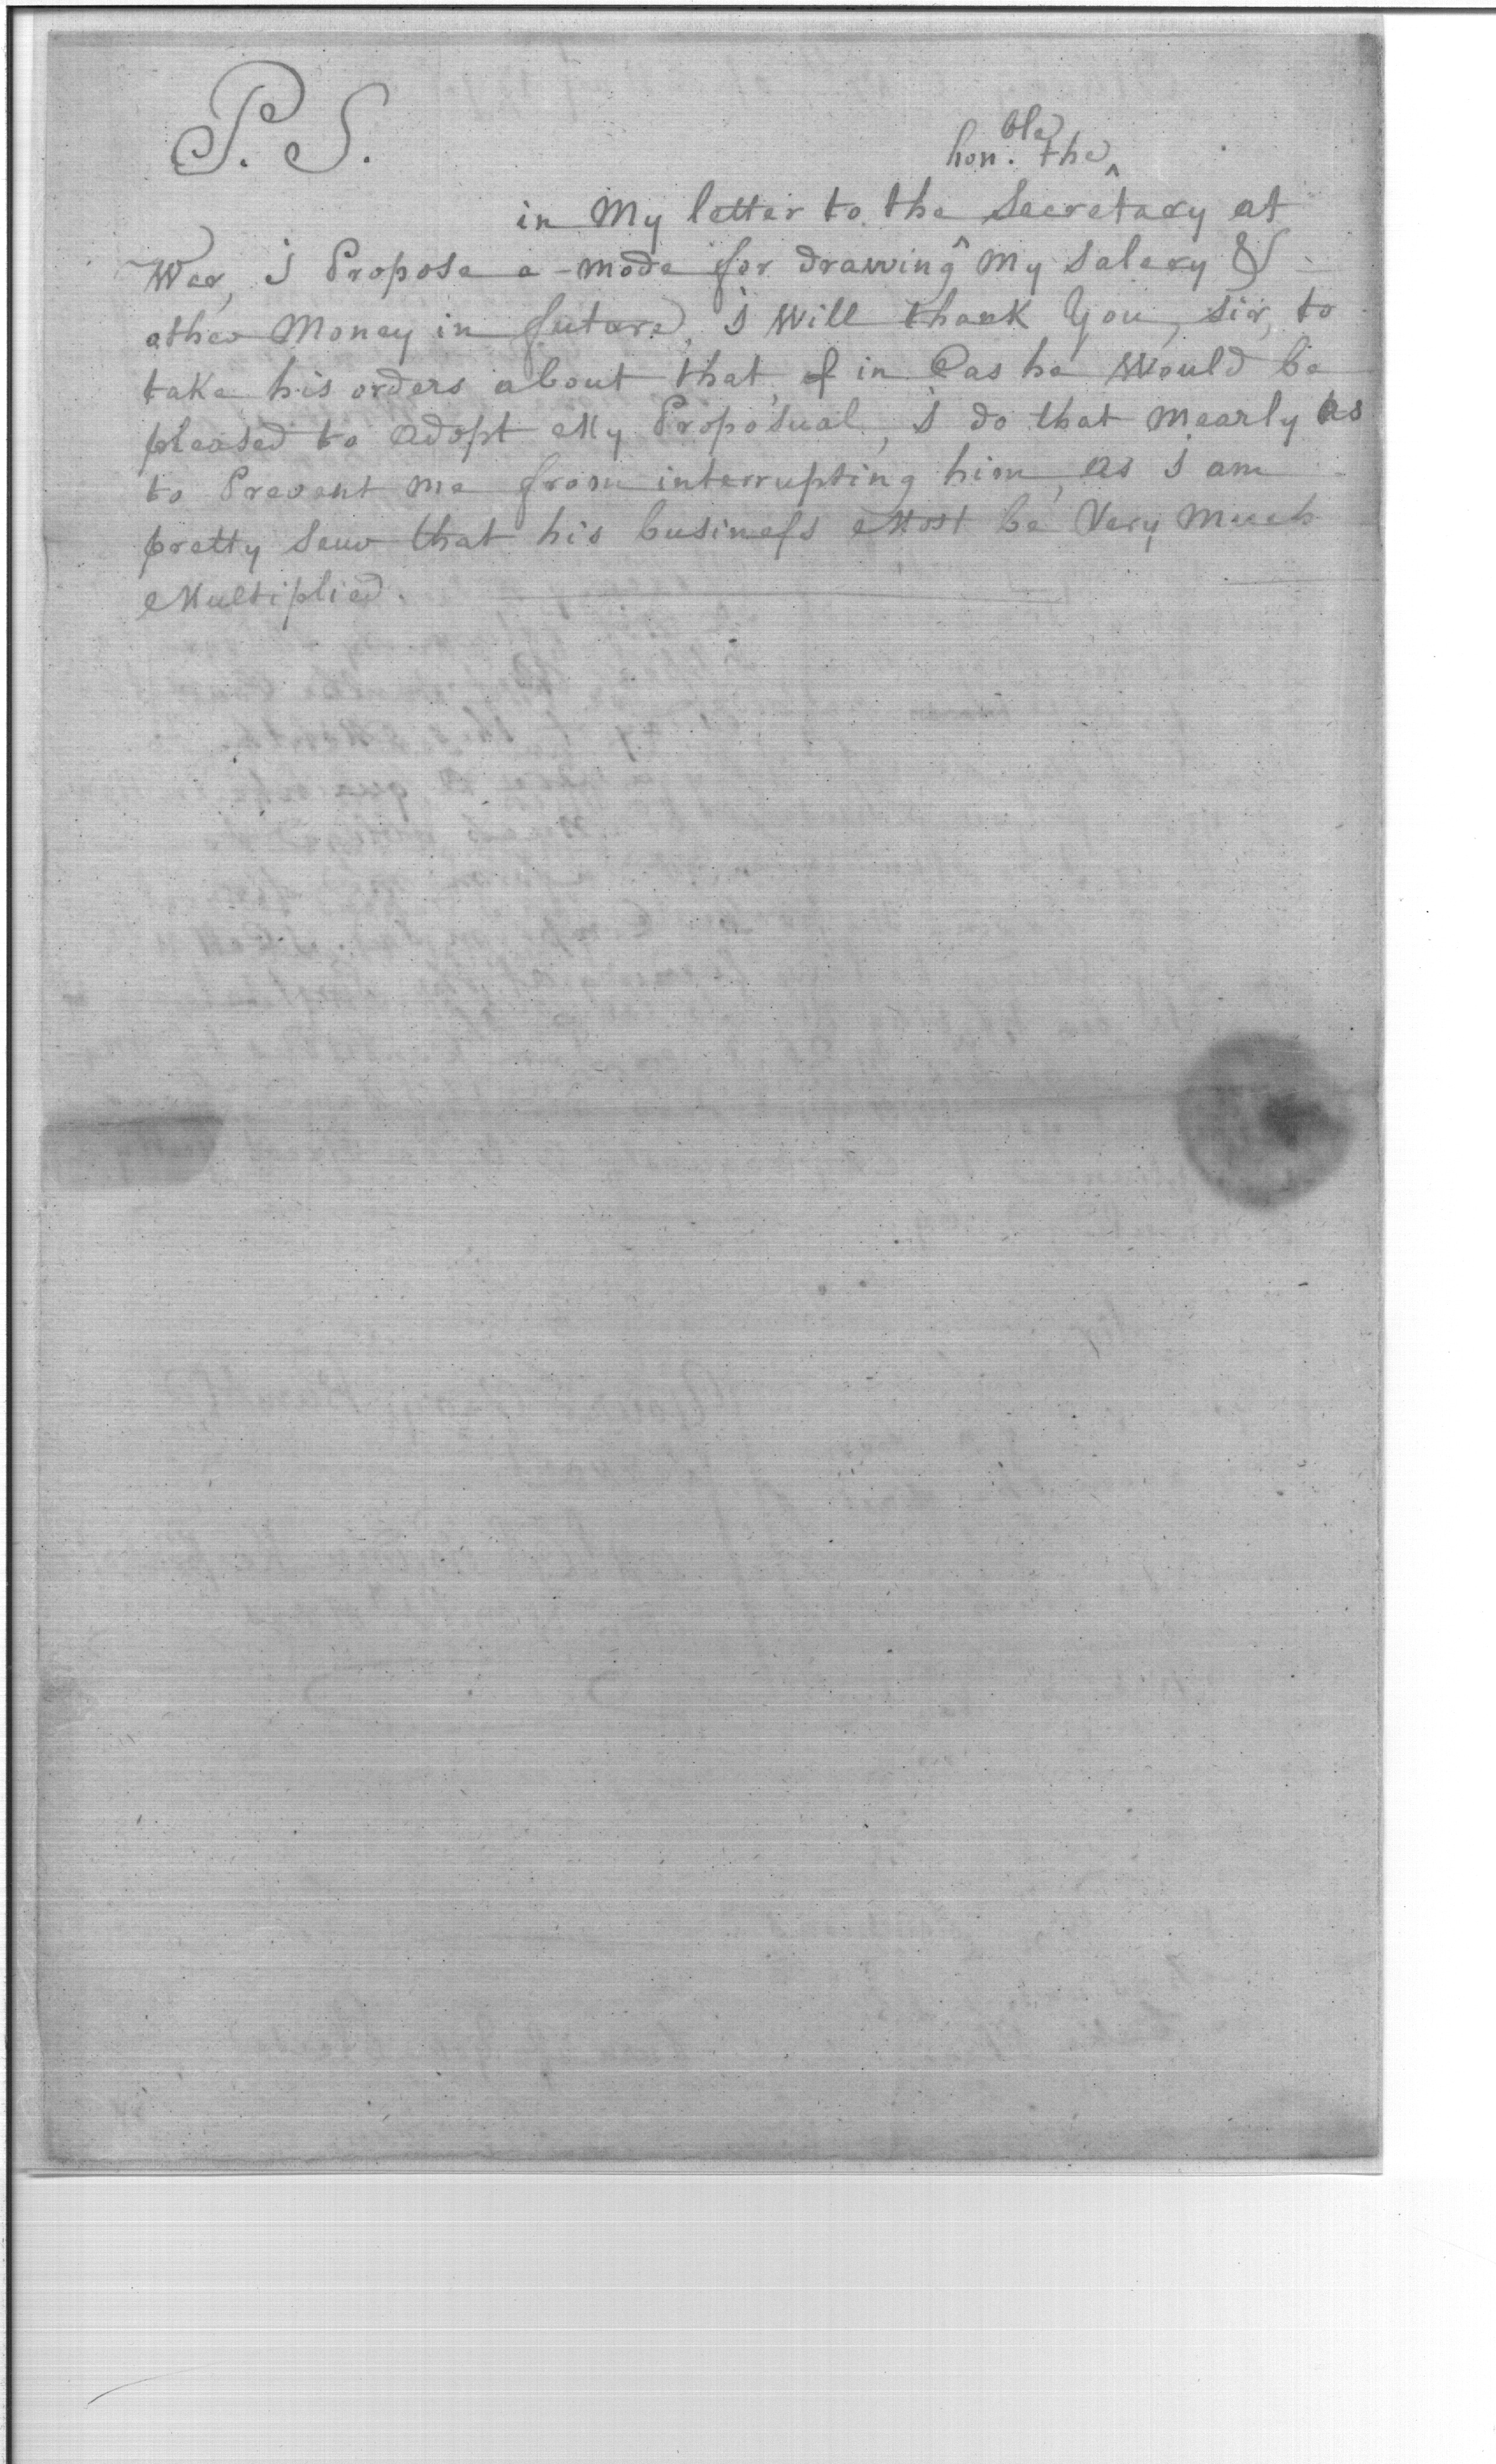 P. S.
hon.ble the
in My letter to the Secretary at
War, i Propose a mode for drawing My Salary &
other Money in future, i Will thank You, sir, to
take his orders about that, & in Cas he Would be
pleased to adopt My Proposual, i do that Mearly as
to Prevent me from interrupting him, as i am
pretty seur that his business Most be Very Much
Multiplied.